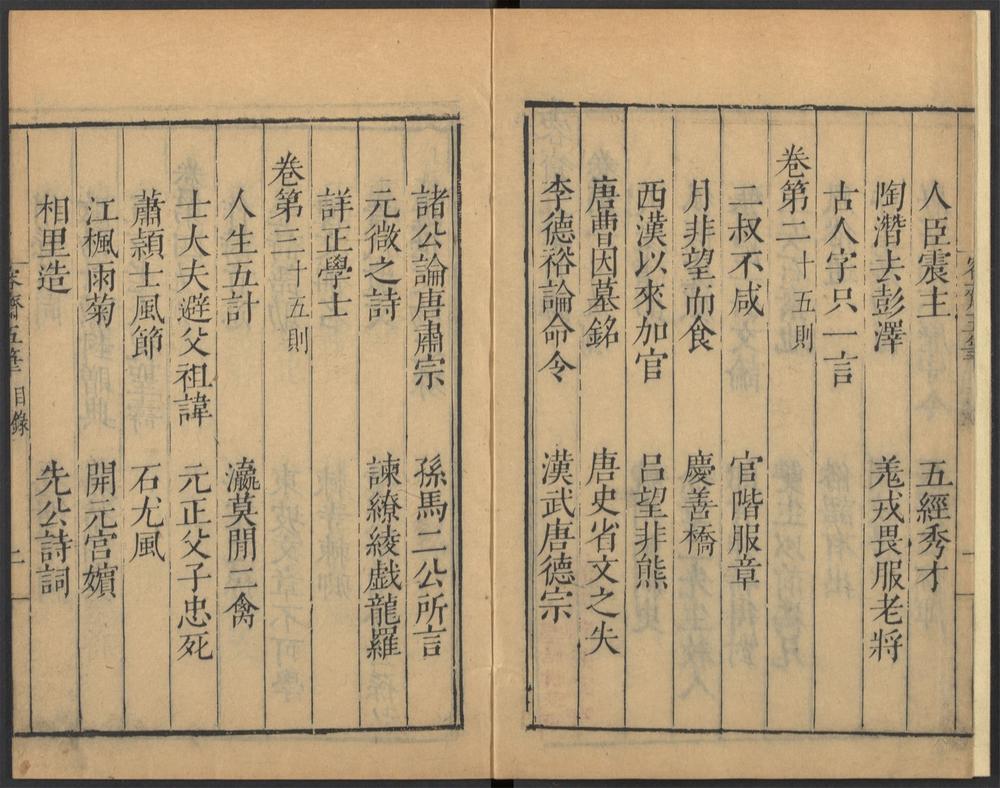 人臣震主　五經秀才
陶潛去彭澤　羗戎畏服老將
古人字只一言
卷第二十五則
二叔不咸　官階服章
月非望而食　慶善橋
西漢以來加官　呂望非熊
唐曹因墓銘　唐史省文之失
李德裕論命令　漢武唐德宗
諸公論唐肅宗　孫馬二公所言
元微之詩　諫繚綾戲龍羅
詳正學士
卷第三十五則
人生五計　瀛莫間二禽
士大夫避父祖諱　元正父子忠死
蕭頴士風節　石尤風
江楓雨菊　開元宮嬪
相里造　先公詩詞
容齋五筆　目錄　二